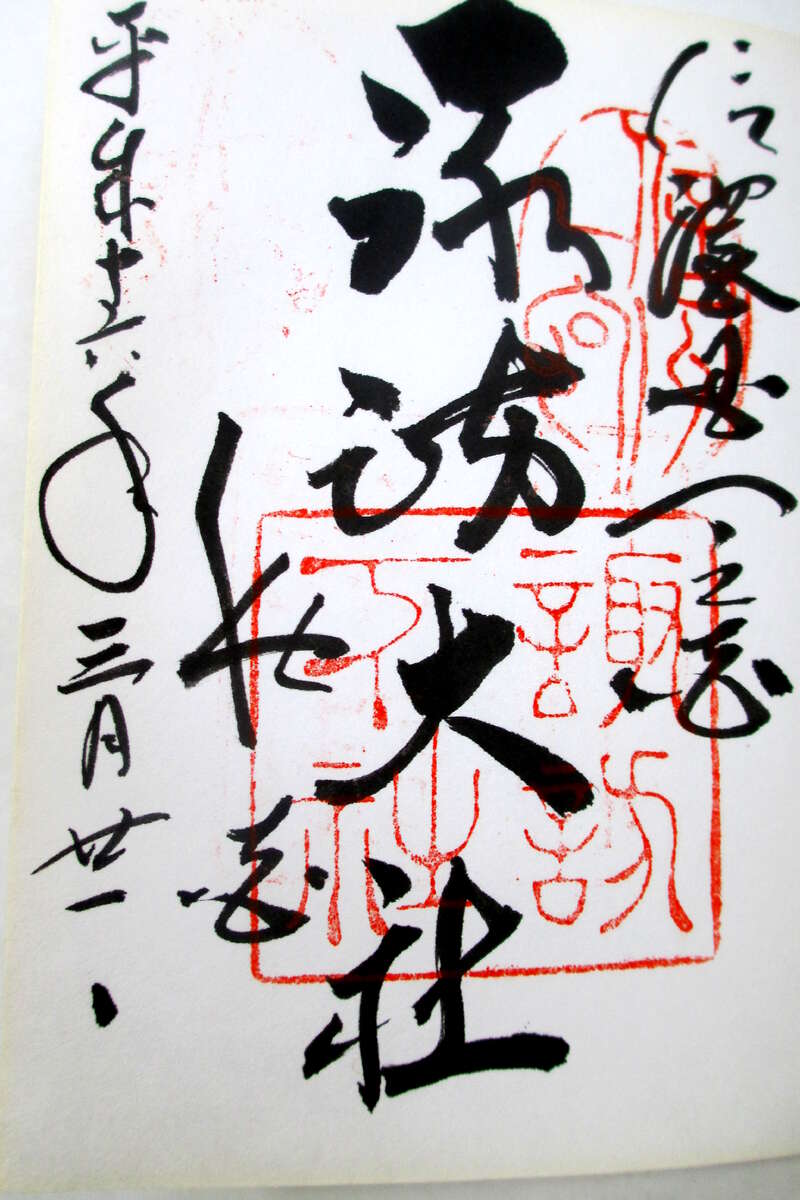 信濃国一之宮
諏訪大社
秋宮
平成十六年三月廿一日
諏訪
下社